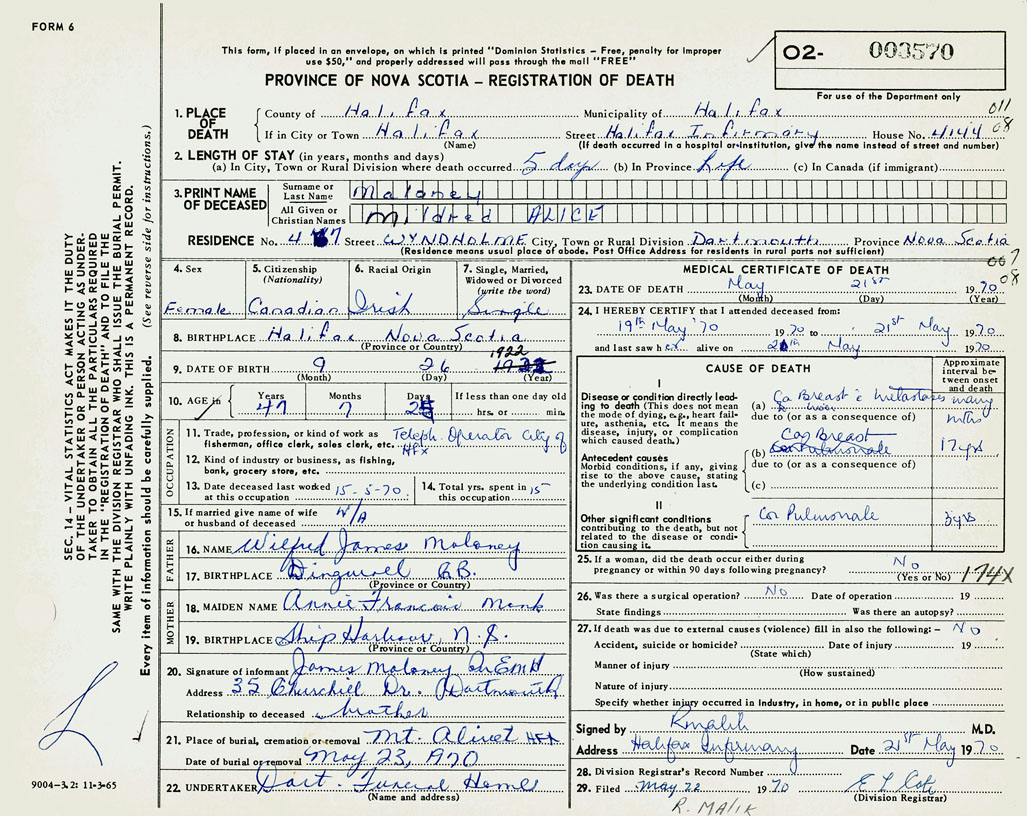 FORM 6
This form, if placed in an envelope, on which is printed "Dominion Statistics – Free, penalty for improper
use $50," and properly addressed will pass through the mail "FREE"
O2- 003570
For use of the Department only
PROVINCE OF NOVA SCOTIA – REGISTRATION OF DEATH
SEC. 14 – VITAL STATISTICS ACT MAKES IT THE DUTY
OF THE UNDERTAKER OR PERSON ACTING AS UNDER-
TAKER TO OBTAIN ALL THE PARTICULARS REQUIRED
IN THE "REGISTRATION OF DEATH" AND TO FILE THE
SAME WITH THE DIVISION REGISTRAR WHO SHALL ISSUE THE BURIAL PERMIT.
WRITE PLAINLY WITH UNFADING INK. THIS IS A PERMANENT RECORD.
Every item of information should be carefully supplied. (See reverse side for instructions.)
1. PLACE OF DEATH
County of Halifax Municipality of Halifax 011
If in City or Town Halifax Street Halifax Infirmary House No. 4144 08
(Name) (If death occurred in a hospital or institution, give the name instead of street and number)
2. LENGTH OF STAY (in years, months and days)
(a) In City, Town or Rural Division where death occurred 5 days (b) In Province Life (c) In Canada (if immigrant)
3. PRINT NAME OF DECEASED
Surname or Last Name Maloney
All Given or Christian Names Mildred ALICE
RESIDENCE No. 4 7 Street WYNDHOLME City, Town or Rural Division Dartmouth Province Nova Scotia
(Residence means usual place of abode. Post Office Address for residents in rural parts not sufficient)
007
08
4. Sex
Female
5. Citizenship (Nationality)
Canadian
6. Racial Origin
Irish
7. Single, Married, Widowed or Divorced (write the word)
Single
8. BIRTHPLACE Halifax Nova Scotia
(Province or Country)
1922
9. DATE OF BIRTH 9 26
(Month) (Day) (Year)
10. AGE in Years Months Days If less than one day old
47 7 hrs. or min.
OCCUPATION
11. Trade, profession, or kind of work as Teleph. Operator City of
fisherman, office clerk, sales clerk, etc. HFX
12. Kind of industry or business, as fishing,
bank, grocery store, etc.
13. Date deceased last worked at this occupation 15-5-70
14. Total yrs. spent in this occupation 15
15. If married give name of wife or husband of deceased N/A
FATHER
16. NAME Wilfred James Maloney
17. BIRTHPLACE C.B.
(Province or Country)
MOTHER
18. MAIDEN NAME Annie Francois Monk
19. BIRTHPLACE Ship Harbour, N.S.
(Province or Country)
20. Signature of informant James Maloney
Address 35 Churchill Dr. Dartmouth
Relationship to deceased brother
21. Place of burial, cremation or removal Mt. Olivet HFX
Date of burial or removal May 23, 1970
22. UNDERTAKER Dart. Funeral Home
(Name and address)
MEDICAL CERTIFICATE OF DEATH
23. DATE OF DEATH May 21st 1970
(Month) (Day) (Year)
24. I HEREBY CERTIFY that I attended deceased from:
19th May '70 1970 to 21st May 1970
and last saw her alive on May 1970
CAUSE OF DEATH
Approximate interval between onset and death
I
Disease or condition directly leading to death (This does not mean the mode of dying, e.g., heart failure, asthenia, etc. It means the disease, injury, or complication which caused death.)
(a) Ca Breast c metastases many mths
due to (or as a consequence of)
Ca Breast
(b) 17 yrs
due to (or as a consequence of)
Antecedent causes
Morbid conditions, if any, giving rise to the above cause, stating the underlying condition last.
(c)
II
Other significant conditions contributing to the death, but not related to the disease or condition causing it.
Cor Pulmonale 3 yrs
25. If a woman, did the death occur either during
pregnancy or within 90 days following pregnancy? No
(Yes or No) 174X
26. Was there a surgical operation? No Date of operation 19
State findings Was there an autopsy?
27. If death was due to external causes (violence) fill in also the following: – No
Accident, suicide or homicide? Date of injury 19
(State which)
Manner of injury
(How sustained)
Nature of injury
Specify whether injury occurred in industry, in home, or in public place
Signed by R Malik M.D.
Address Halifax Infirmary Date 21st May 1970
28. Division Registrar's Record Number
29. Filed May 22 1970
(Division Registrar)
R. MALIK
9004-3.2: 11-3-65